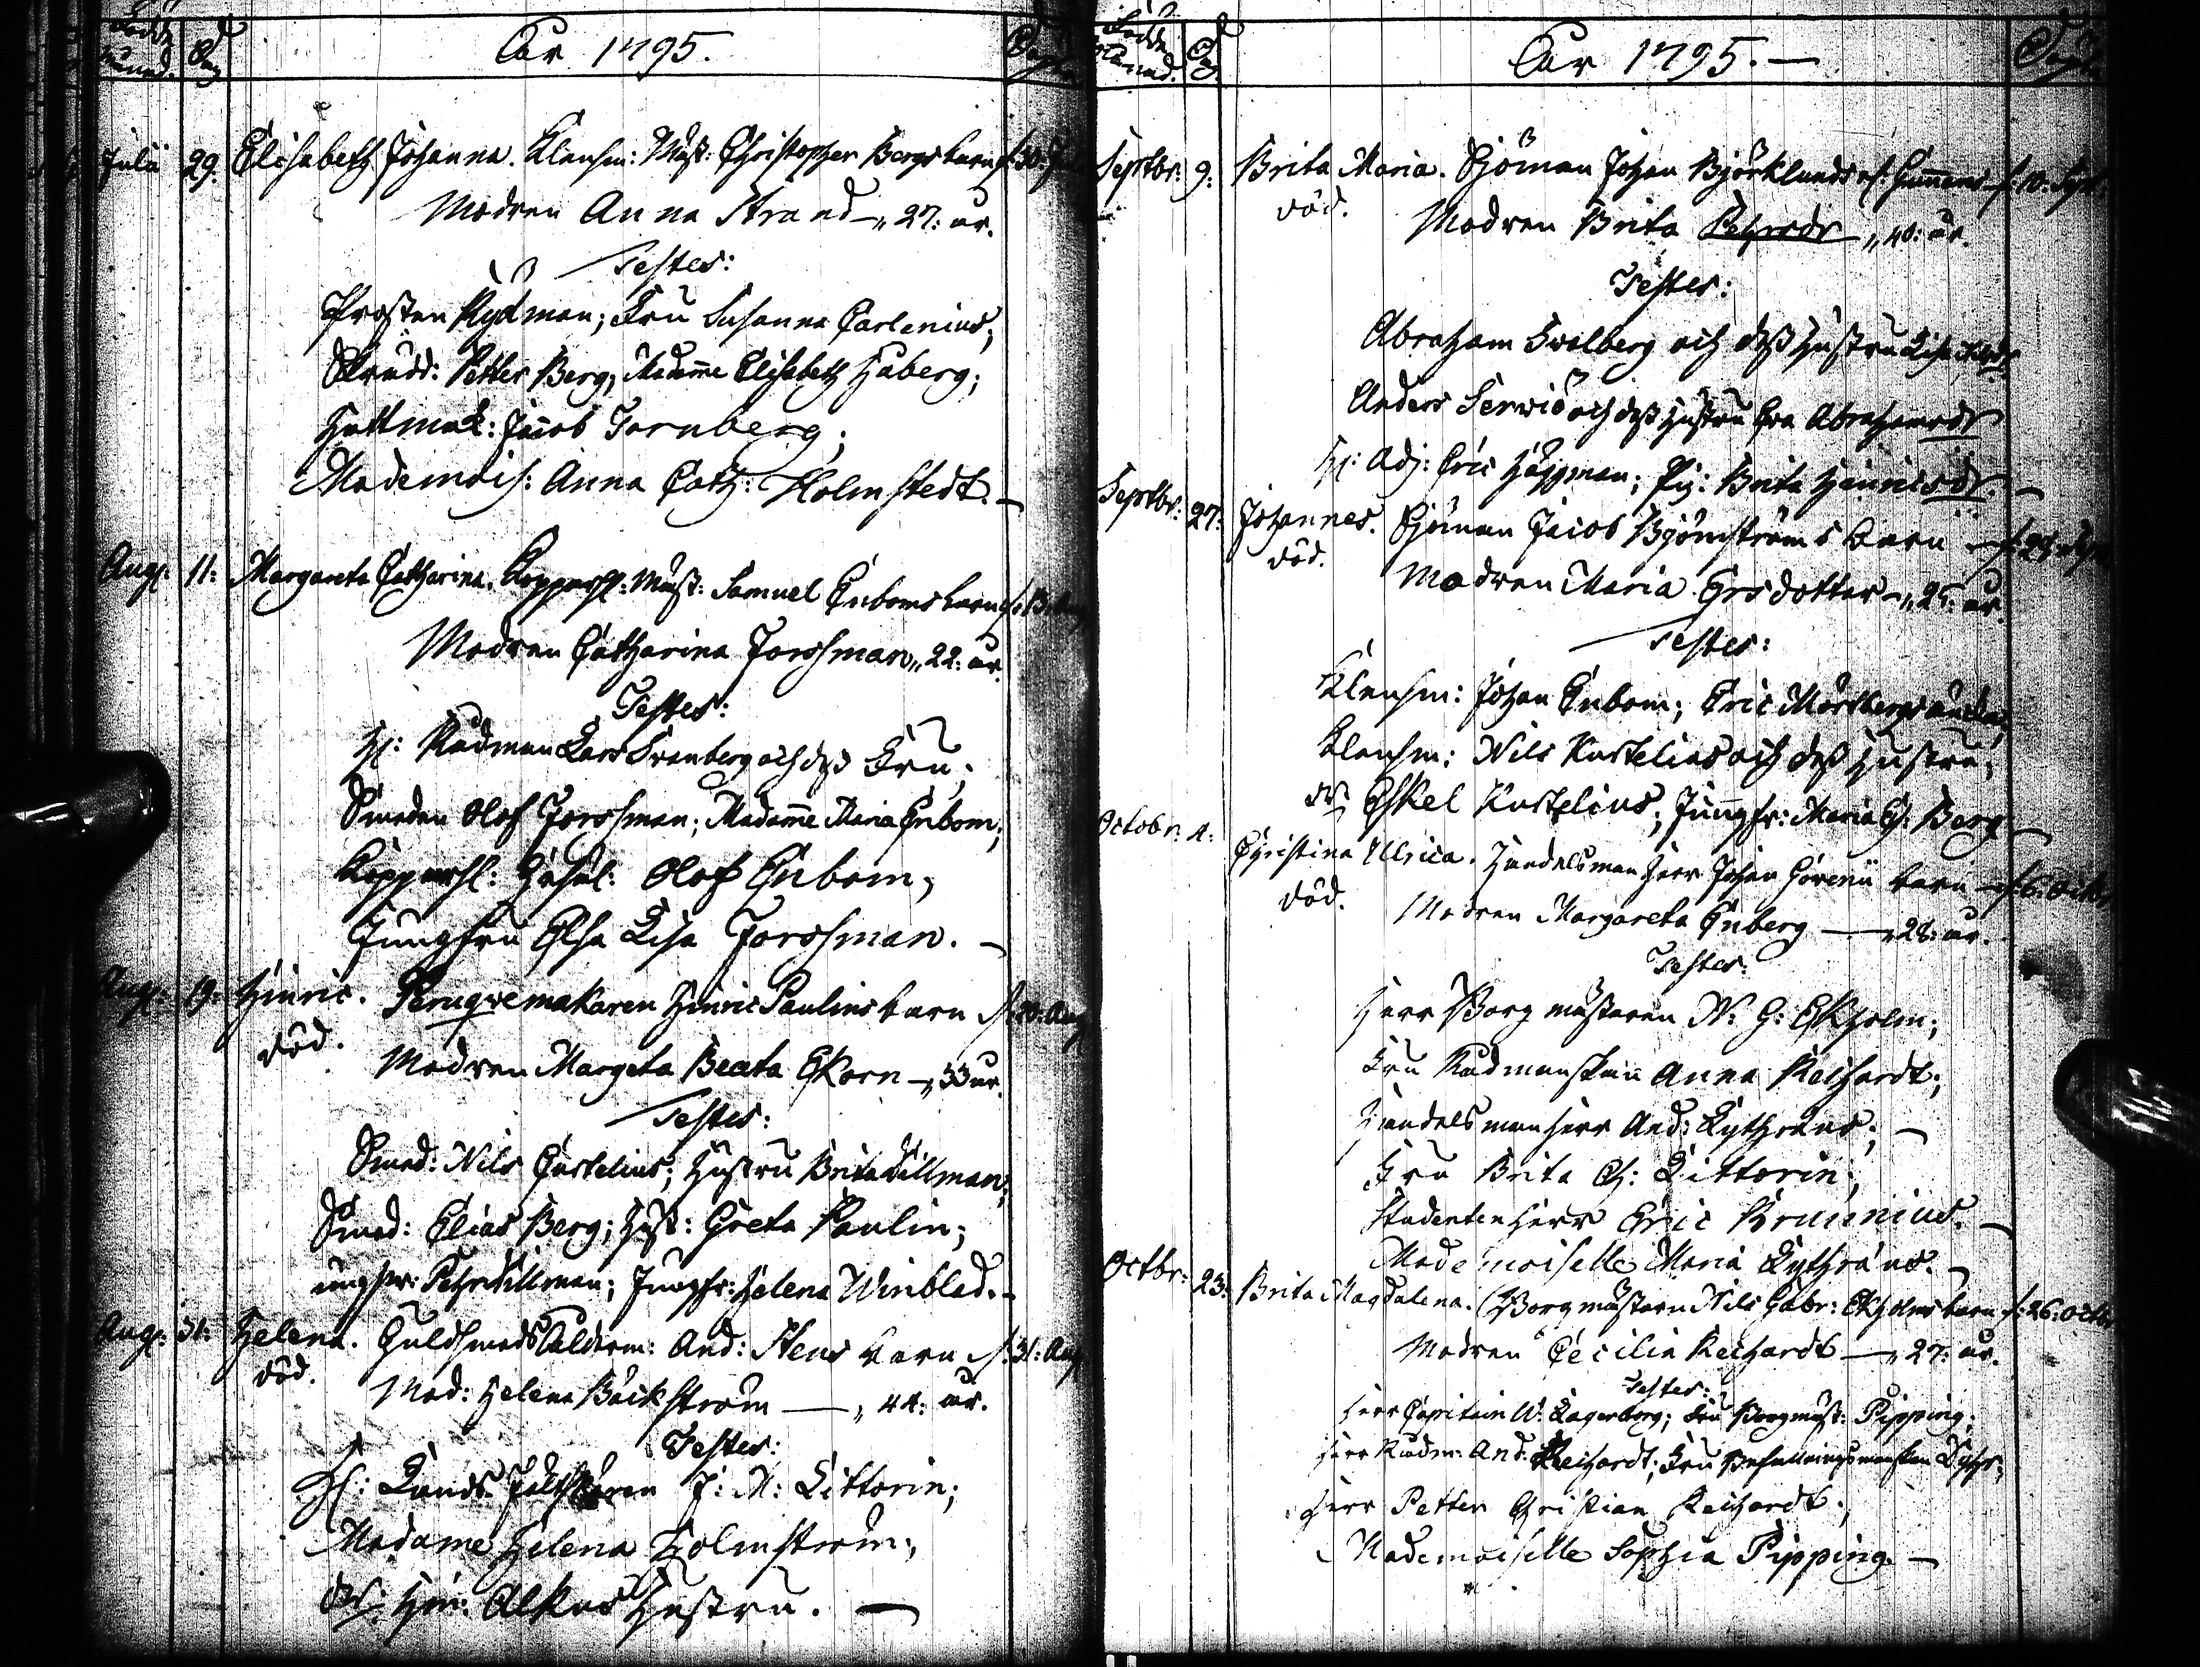 Född Månad. Dag
Åår 1795.
Döpt.
Julii 29. Elisabeth Johanna. Klensm: Mäst: Christopher Bergs barn d. 30. Jul
Modren Anna Strand — 27: år.
Testes:
Prosten Rydman; Fru Susanna Carlenius;
Skrädd: Petter Berg; Madamme Elisabeth Haberg;
Hattmak: Jacob Tornberg;
Mademois: Anna Cath: Holmstedt. —
Aug: 11: Margareta Catharina. Kopparsl: Mäst: Samuel Enboms barn d:
Modren Catharina Forssman „ 22: år.
Testes:
Hr: Rådman Lars Svanberg och dess Fru;
Smeden Olof Forssman; Madamme Maria Enbom;
Kopparsl: Gesäl: Olof Enbom;
Jungfru Elsa Lisa Forssman. —
Aug: 19: Hinric. Peruqvemakaren Hinric Paulins barn d: 20: Aug
död.
Modren Margeta Beata Ekorn — „ 33 år.
Testes:
Smed: Nils Custelius; Hustru Brita Dillman;
Smed: Elias Berg; Hust: Greta Paulin;
ungkar: Pehr Dillman; Jungfr: Helena Winblad. —
Aug: 31: Helena. Guldsmeds Ålderm: And: Stens barn d. 31: Aug
död.
Mod: Helena Bäckström — „ 44: år.
Testes:
Hr: Lands Fältskären J: M: Littorin;
Madame Helena Holmström;
Hin: Alkus Hustru. —
Född Månad. Dag
Åår 1795. —
Döpt.
Septbr: 9: Brita Maria. Sjöman Johan Björklunds d: 10: Sept
död.
Modren Brita Pehrsdr „ 40: år.
Testes:
Abraham Svalberg och dess Hustru Lisa
Anders Servio och dess Hustru Eva Abrahamsdr
Hr: Adj: Eric Höckman; Pig: Brita Hinricsdr. —
Septbr: 27: Johannes. Sjöman Jacob Björnströms barn
död.
Modren Maria Ersdotter — „ 25: år.
Testes:
Klensm: Johan Enbom; Eric Mörtbergs änka;
Klensm: Nils Kustelius och dess Hustru;
Eskel Kustelius; Jungfr: Maria El: Berg —
Octobr: 4: Christina Ulrica. Handelsman Herr Johan Hörenii barn — d: 6: Octbr
död.
Modren Margareta Enberg — „ 28: år.
Testes:
Herr Borgmästaren N: G: Ekholm;
Fru Rådmanskan Anna Reihardt;
Handelsman Herr And: Lythräus; —
Fru Brita El: Littorin;
Studenten Herr Eric Brunnius. —
Mademoiselle Maria Lythräus. —
Octbr: 23: Brita Magdalena. Borgmästaren Nils Gabr: Ekholms barn d: 26: Octbr
Modren Cecilia Reihardt — „ 27: år.
Testes:
Herr Capitain W: Lagerborg; Fru Borgmäst: Pipping;
Herr Rådm: And: Reihardt; Fru Befallningsmanskan
Herr Petter Christian Reihardt;
Mademoiselle Sophia Pipping. —